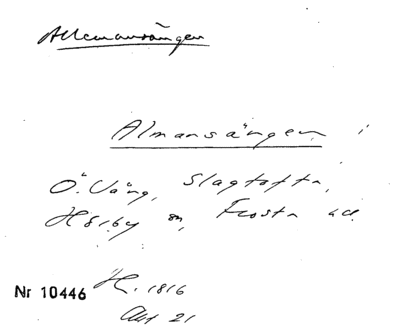 Allemansängen
Almansängen i
Ö. Vång, Slagtofta,
Hörby sn, Frosta hd.
Nr 10446 H. 1816
Akt 21